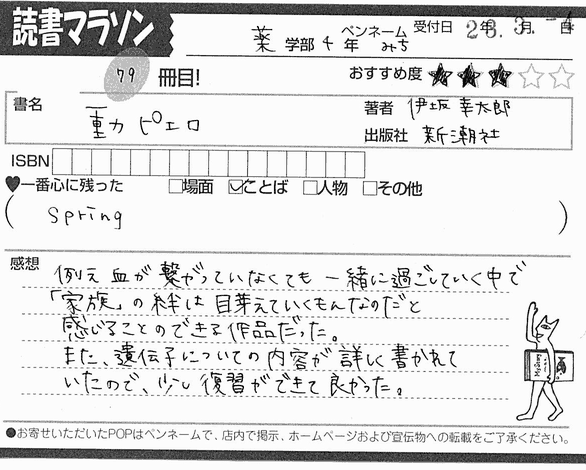 読書マラソン
薬 学部 4 年 ペンネーム みち 受付日 23年3月-4日
79 冊目! おすすめ度 ★★★☆☆
書名 重力ピエロ
著者 伊坂幸太郎
出版社 新潮社
ISBN
♥一番心に残った □場面 ☑ことば □人物 □その他
( spring )
感想
例え血が繋がっていなくても一緒に過ごしていく中で
「家族」の絆は目芽えていくもんなのだと
感じることのできる作品だった。
また、遺伝子についての内容が詳しく書かれて
いたので、少し復習ができて良かった。
●お寄せいただいたPOPはペンネームで、店内で掲示、ホームページおよび宣伝物への転載をご了承ください。